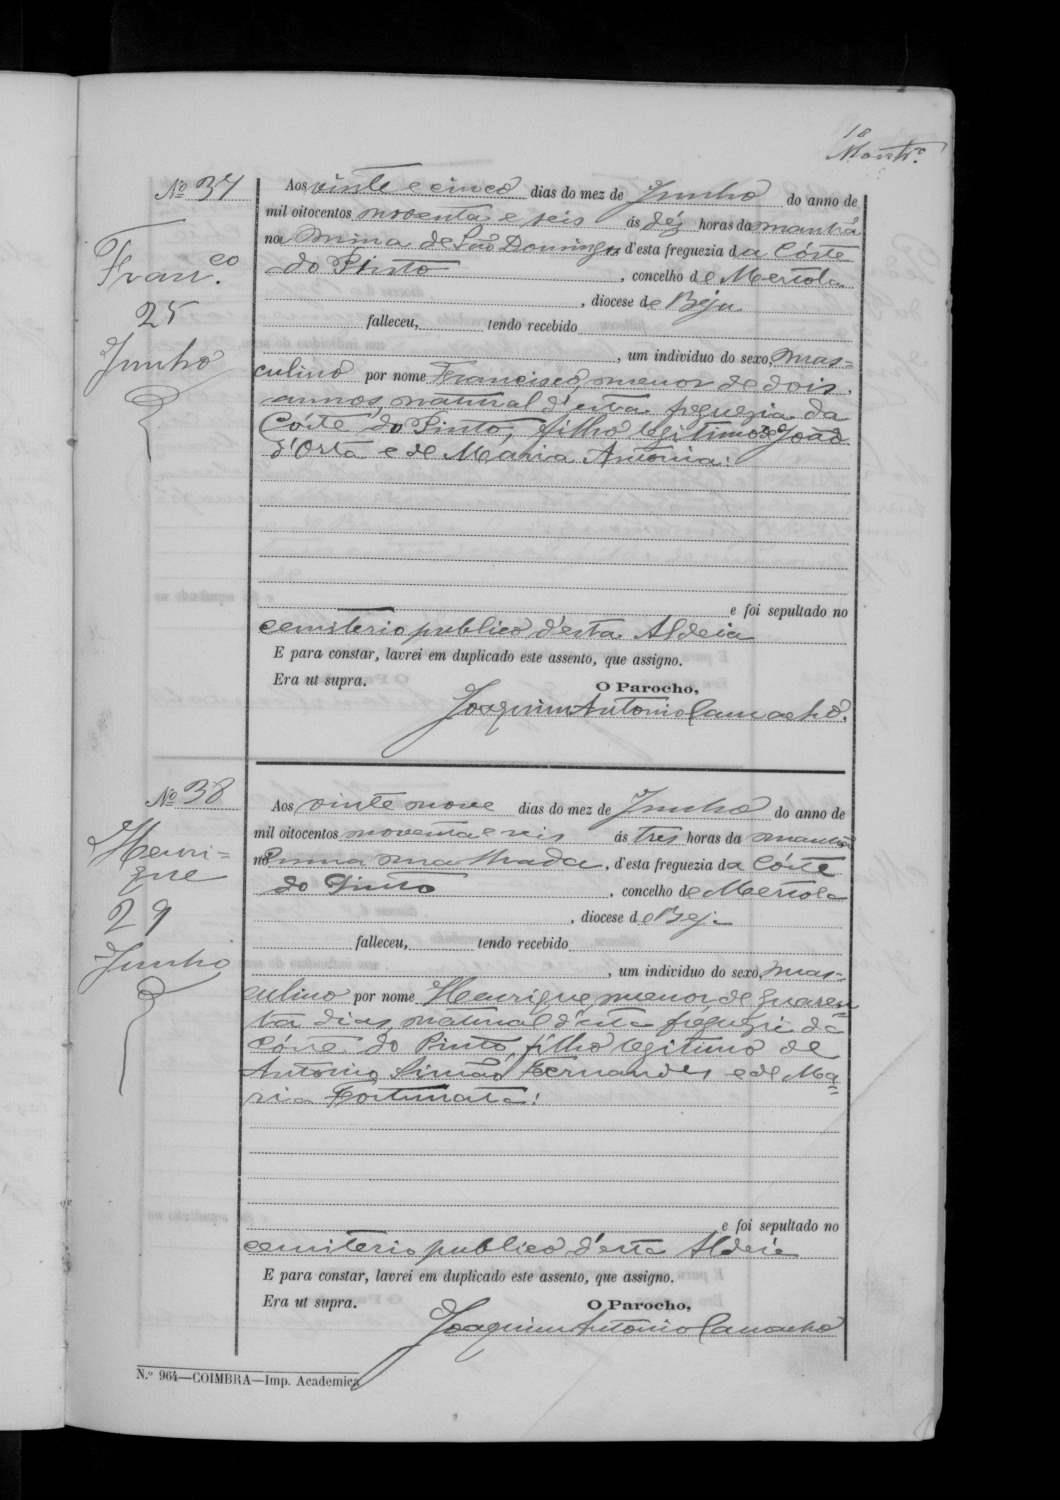 18
Nº 37
Aos vinte e cinco dias do mez de Junho do anno de
mil oitocentos noventa e seis ás déz horas da manhã
na Mina de São Domingos d'esta freguezia da Córte
do Pinto, concelho de Mertola
, diocese de Beja
falleceu, tendo recebido
, um individuo do sexo, mas-
culino por nome Francisco, menor de dois
annos, natural d'esta freguezia da
Córte do Pinto, filho legitimo de João
d'Orta e de Maria Antonia.
e foi sepultado no
cemiterio publico d'esta Aldeia
E para constar, lavrei em duplicado este assento, que assigno.
Era ut supra.
O Parocho,
Joaquim Antonio Camacho.
Fran.co
25
Junho
Nº 38
Aos vinte nove dias do mez de Junho do anno de
mil oitocentos noventa e seis ás tres horas da manhã
, d'esta freguezia da Córte
do Pinto, concelho de Mertola
, diocese de Beja
falleceu, tendo recebido
, um individuo do sexo, mas-
culino por nome Henrique, menor, de quaren=
ta dias, natural d'esta freguezia da
Córte do Pinto, filho legitimo de
Antonio Simão Fernandes e de Ma=
ria Fortunata.
e foi sepultado no
cemiterio publico d'esta Aldeia
E para constar, lavrei em duplicado este assento, que assigno.
Era ut supra.
O Parocho,
Joaquim Antonio Camacho
Henri=
que
29
Junho
N.º 964—COIMBRA—Imp. Academica